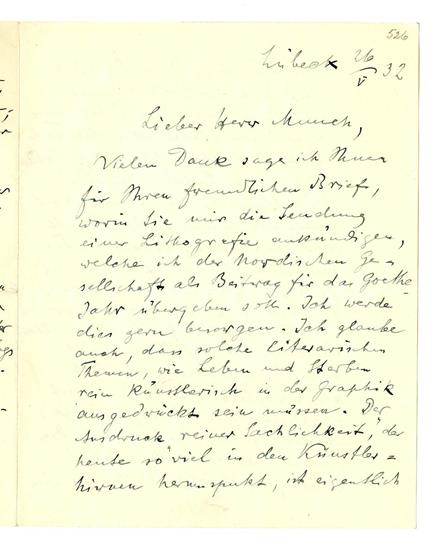 526
Lübeck 26/V 32
Lieber Herr Munch,
Vielen Dank sage ich Ihnen
für Ihren freundlichen Brief,
worin Sie mir die Sendung
einer Lithografie ankündigen,
welche ich der Nordischen Ge=
sellschaft als Beitrag für das Goethe
Jahr übergeben soll. Ich werde
dies gern besorgen. Ich glaube
auch, dass solche literarischen
Themen, wie Leben und Sterben
rein künstlerisch in der Graphik
ausgedrückt sein müssen. Der
Ausdruck "reiner Sachlichkeit", der
heute so viel in den Künstler=
hirnen herumspukt, ist eigentlich